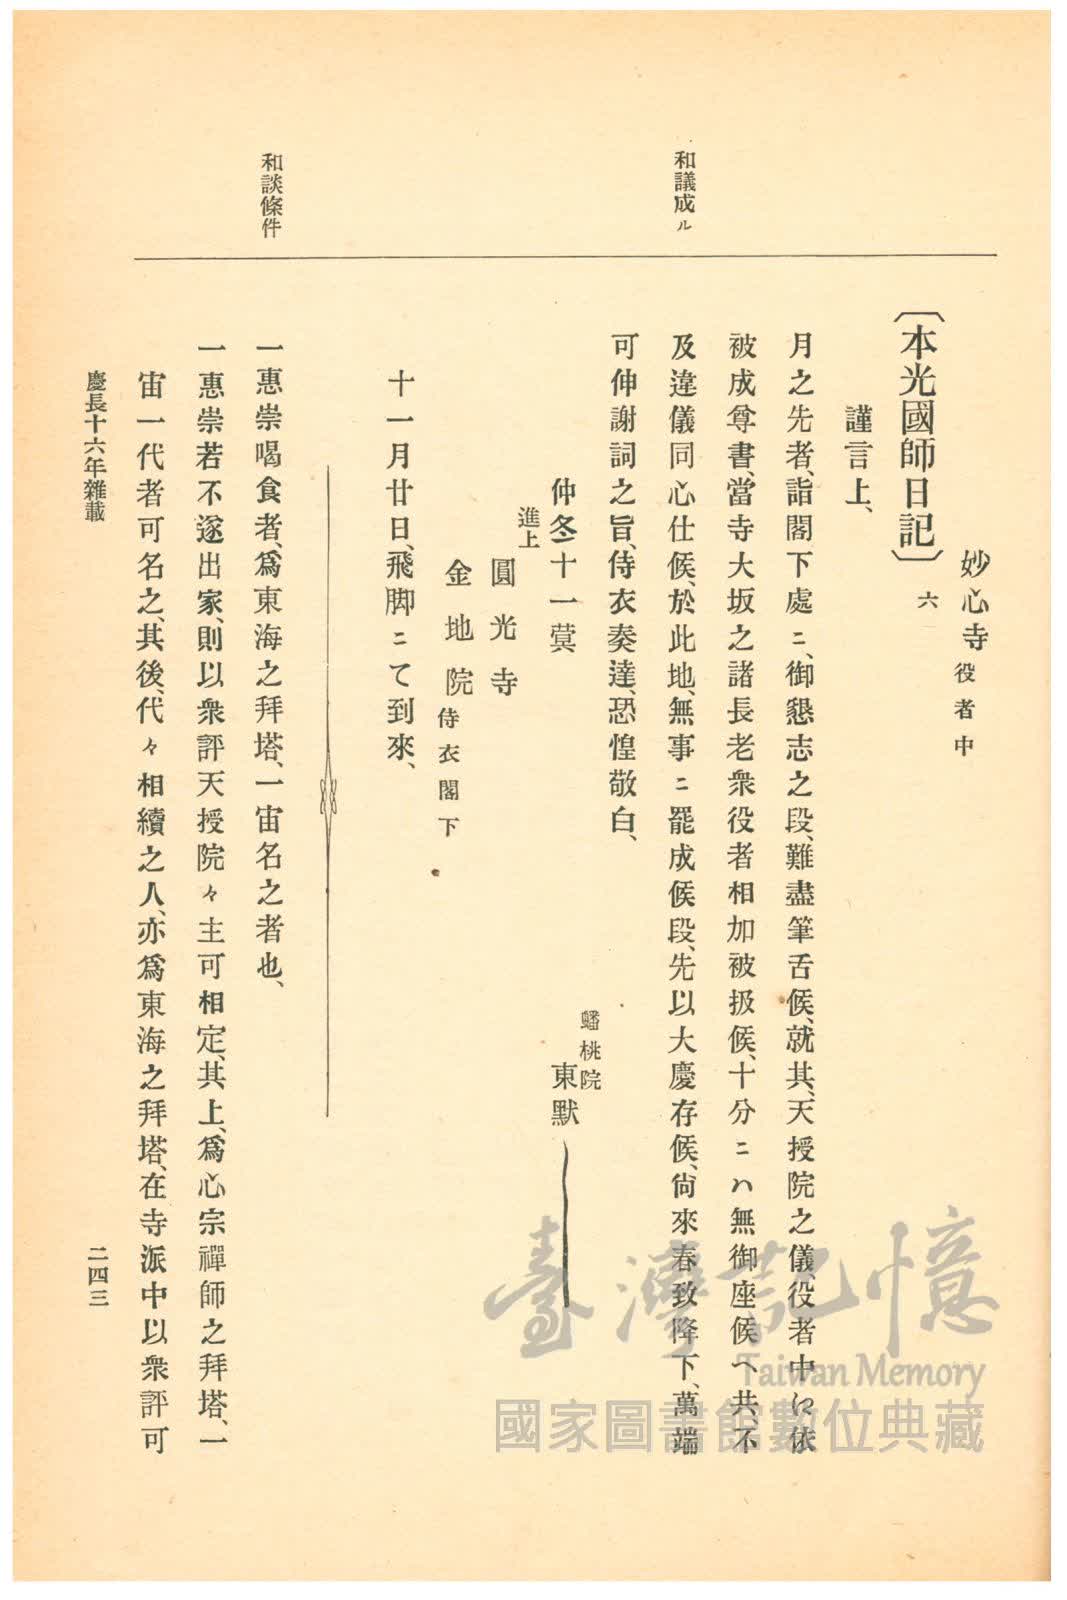 妙心寺役者中
〔本光國師日記〕六
謹言上、
月之先者、詣閣下處ニ、御懇志之段、難盡筆舌候、就其、天授院之儀、役者中に依
被成尊書、當寺大坂之諸長老衆役者相加被扱候、十分ニハ無御座候ヘ共、不
及違儀同心仕候、於此地、無事ニ罷成候段、先以大慶存候、尙來春致降下、萬端
可伸謝詞之旨、侍衣奏達、恐惶敬白、
蟠桃院
仲冬十一蓂 東默
進上
圓光寺
金地院侍衣閣下
十一月廿日、飛脚ニて到來、
一惠崇喝食者、爲東海之拜塔、一宙名之者也、
一惠崇若不遂出家、則以衆評天授院々主可相定、其上、爲心宗禪師之拜塔、一
宙一代者可名之、其後、代々相續之人、亦爲東海之拜塔、在寺派中以衆評可
和議成ル
和談條件
慶長十六年雜載
二四三
臺灣記憶
Taiwan Memory
國家圖書館數位典藏